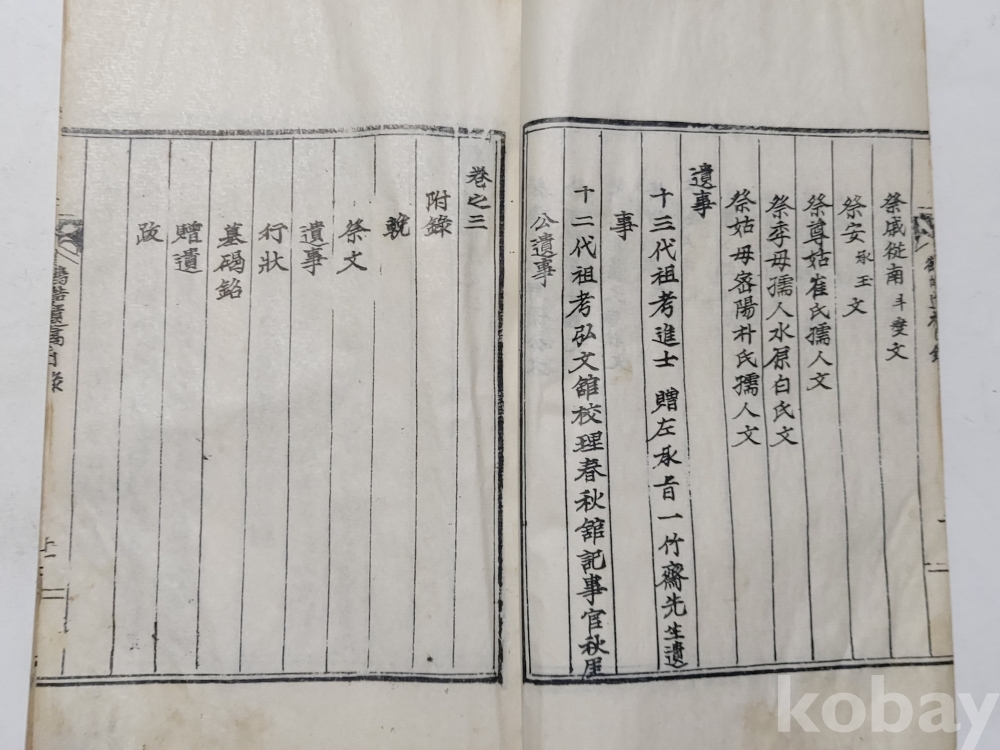 祭戚從南斗燮文
祭安承玉文
祭尊姑崔氏孺人文
祭季母孺人水原白氏文
祭姑母密陽朴氏孺人文
遺事
十三代祖考進士 贈左承旨一竹齋先生遺
事
十二代祖考弘文舘校理春秋舘記事官秋厓
公遺事
卷之三
附錄
輓
祭文
遺事
行狀
墓碣銘
贈遺
跋
遺稿目錄
kobay